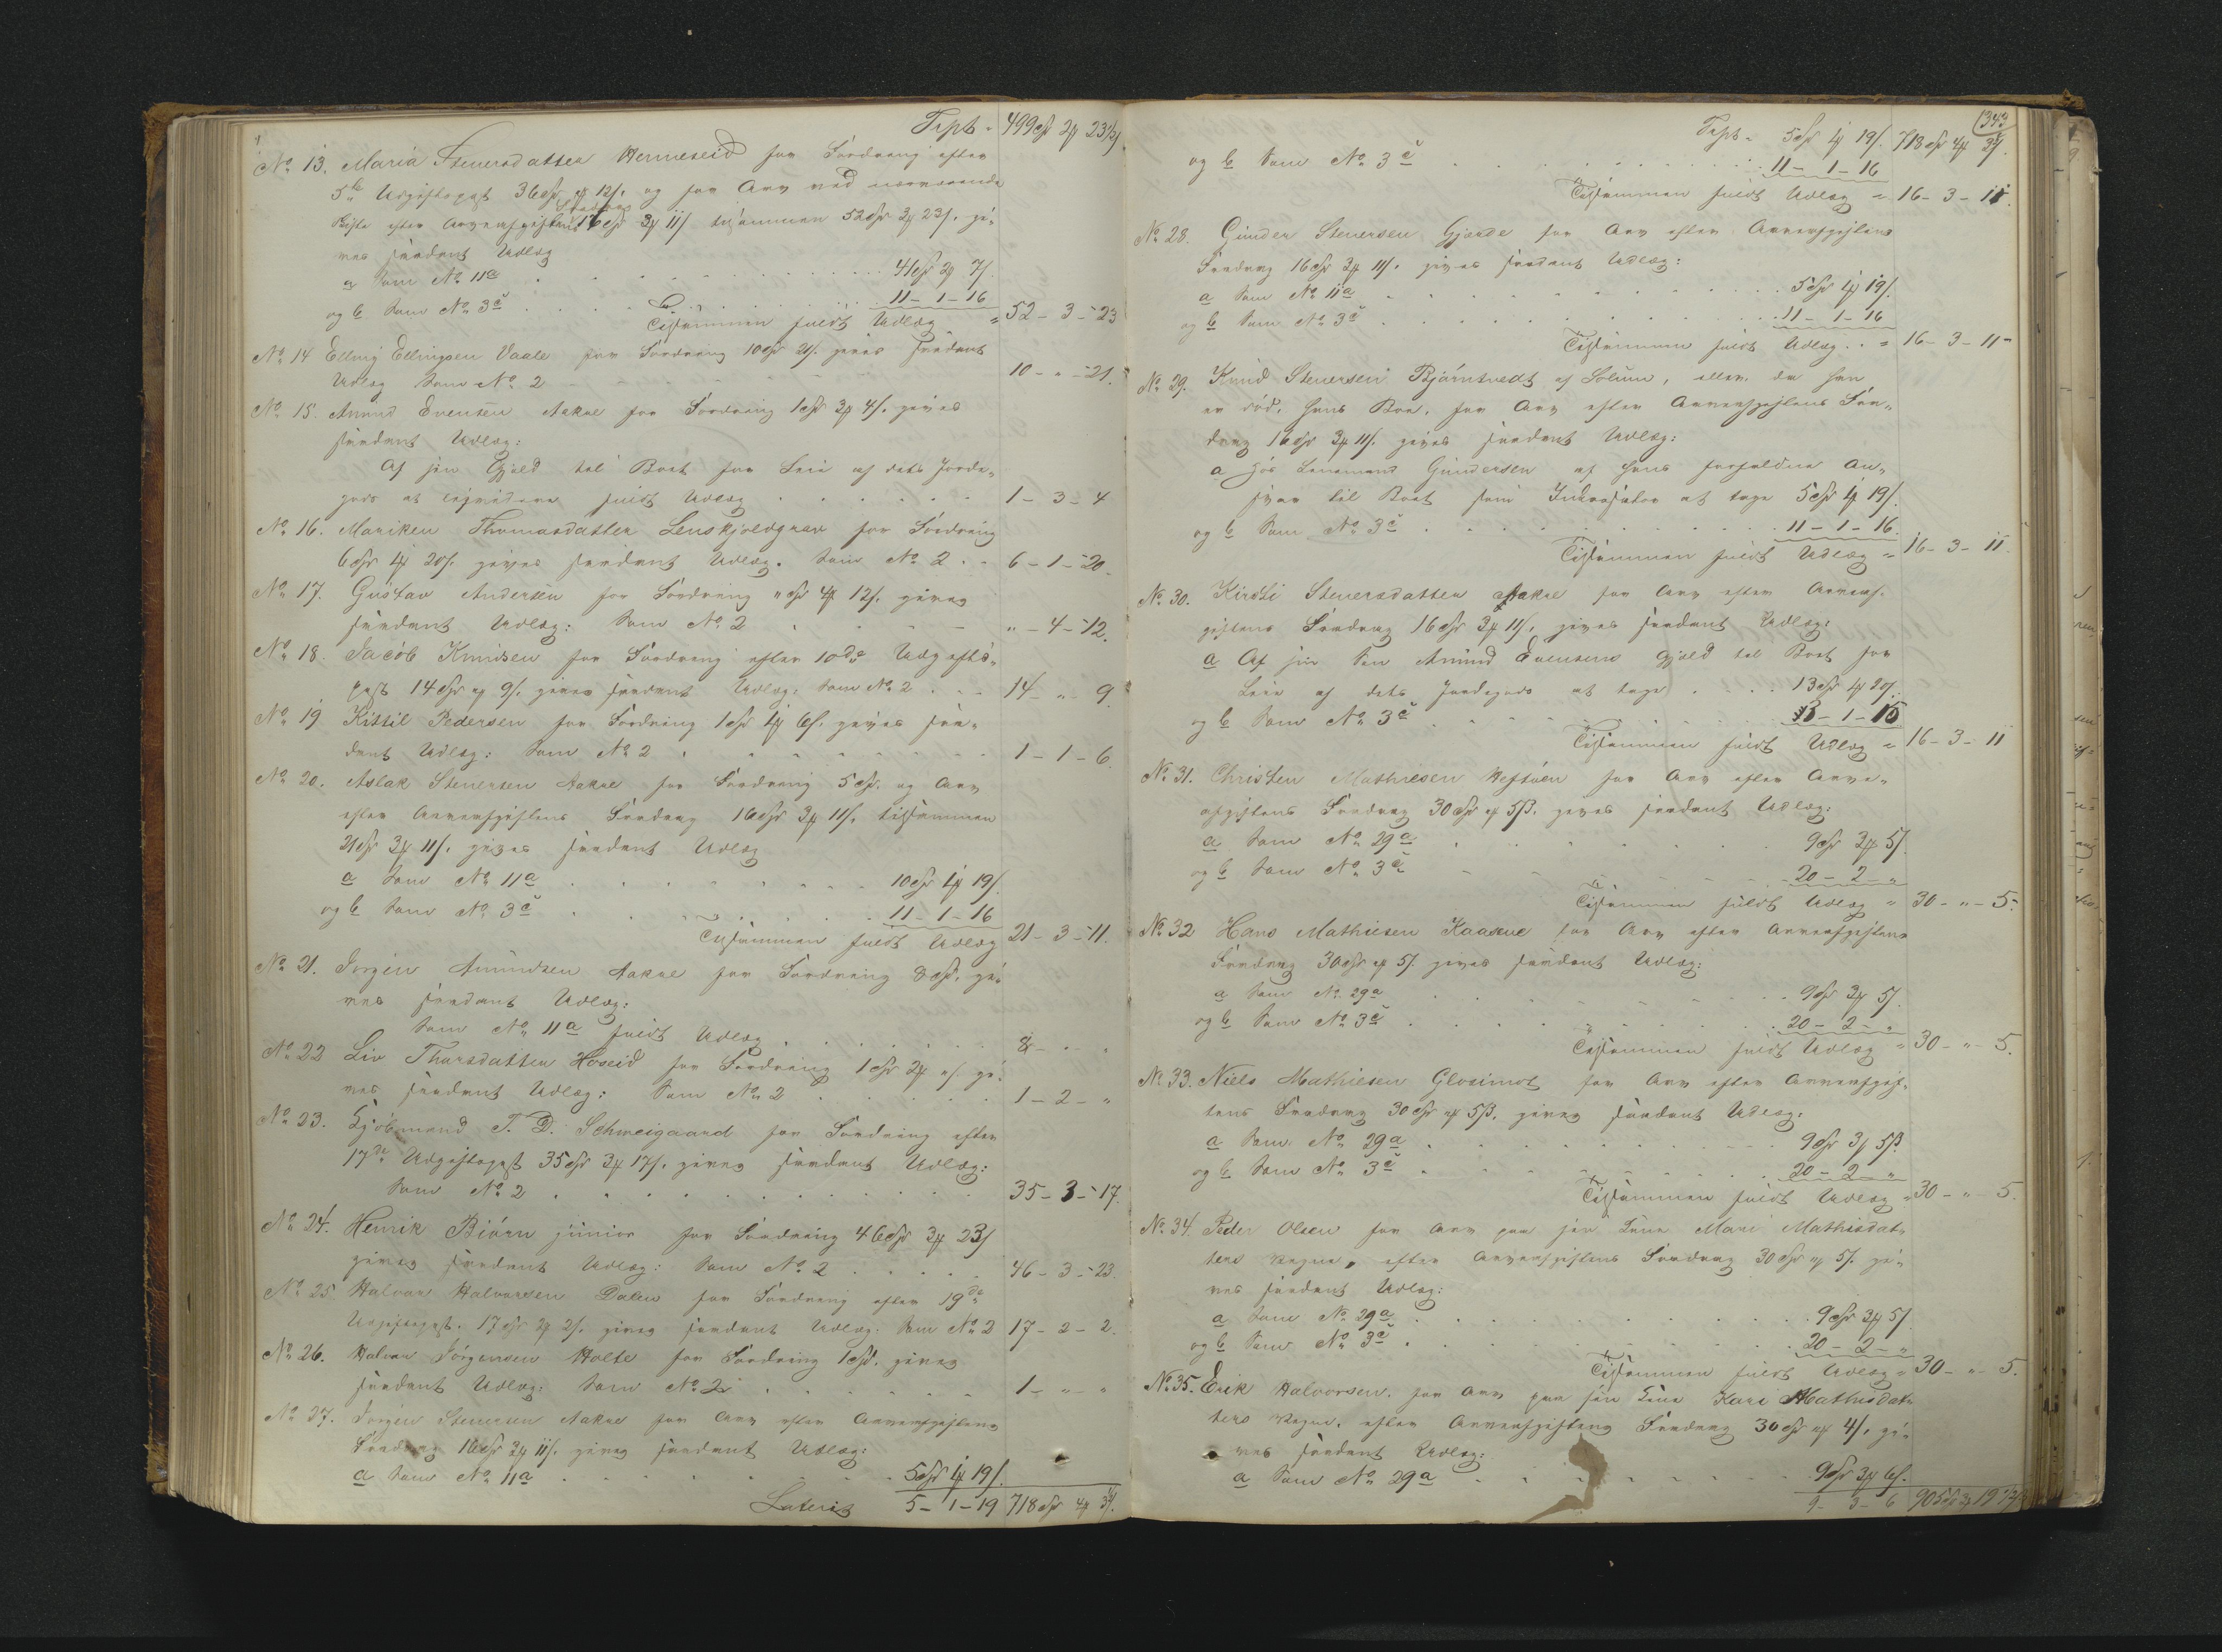 Trpt. 499 Spd 2 ort 23 1/2 s.
No 13. Maria Stenersdatter Henneseid for Fordring efter
5te Udgiftspost 36 Spd " ort 12 s. og for Arv ved nærværende
Skifte efter Arveafgiftens Fradrag 16 Spd 3 ort 11 s tilsammen 52 Spd 3 ort 23 s. gi-
ves saadant Udlæg
a Som No 11a . . . 41 Spd 2 ort 7 s.
og b Som No 3c . . . 11 - 1 - 16
Tilsammen fuldt Udlæg = 52 - 3 - 23
No 14 Elling Ellingsen Vaale for Fordring 10 Spd 21 s. gives saadant
Udlæg Som No 2 10 - " - 21.
No 15. Amund Evensen Aakre for Fordring 1 Spd 3 ort 4 s. gives
saadant Udlæg:
Af sin Gjæld til Boet for Leie af dets Jorde-
gods at liqvidere fuldt Udlæg . . . 1 - 3 - 4
No 16. Mariken Thomasdatter Lenskjoldgrav for Fordring
6 Spd 1 ort 20 s. gives saadant Udlæg. Som No 2 . . 6 - 1 - 20.
No 17. Gustav Andersen for Fordring " Spd 4 ort 12 s. gives
saadant Udlæg: Som No 2 " - 4 - 12.
No 18. Jacob Knudsen for Fordring efter 10de Udgifts-
post 14 Spd " ort 9 s. gives saadant Udlæg: Som No 2 . . . 14 - " - 9.
No 19 Kittil Pedersen for Fordring 1 Spd 1 ort 6 s. gives saa-
dant Udlæg: Som No 2 1 - 1 - 6.
No 20. Aslak Stenersen Aakre for Fordring 5 Spd. og Arv
efter Arveafgiftens Fradrag 16 Spd 3 ort 11 s. tilsammen
21 Spd 3 ort 11 s. gives saadant Udlæg
a Som No 11a . . . 10 Spd 1 ort 19 s.
og b Som No 3c . . . 11 - 1 - 16
Tilsammen fuldt Udlæg 21 - 3 - 11.
No 21. Jorgen Amundsen Aakre for Fordring 8 Spd. gi-
ves saadant Udlæg:
Som No 11a fuldt Udlæg . . . 8 - " - "
No 22 Liv Thorsdatter Hoseid for Fordring 1 Spd 2 ort " s gi-
ves saadant Udlæg: Som No 2 . . . 1 - 2 - "
No 23. Kjøbmand T. D. Schweigaard for Fordring efter
17de Udgiftspost 35 Spd 3 ort 17 s. gives saadant Udlæg:
Som No 2 . . . 35 - 3 - 17.
No 24. Henrik Biörn junior for Fordring 46 Spd 3 ort 23 s
gives saadant Udlæg: Som No 2 . . . 46 - 3 - 23.
No 25 Halvor Halvorsen Dalen for Fordring efter 19de
Udgiftspost. 17 Spd 2 ort 2 s. gives saadant Udlæg. Som No 2 17 - 2 - 2.
No 26. Halvor Jörgensen Holte for Fordring 1 Spd. gives
saadant Udlæg: Som No 2 . . . 1 - " - "
No 27. Jorgen Stenersen Aakre for Arv efter Arveafgiftens
Fradrag 16 Spd 3 ort 11 s. gives saadant Udlæg:
a Som No 11a . . . 5 Spd 1 ort 19 s.
Lateris 5 - 1 - 19 718 Spd 4 ort
343
Trpt. 5 Spd 1 ort 19 s. 718 Spd 4 ort
og b Som No 3c . . . 11 - 1 - 16
Tilsammen fuldt Udlæg = 16 - 3 - 11.
No 28. Gunder Stenersen Gjærde for Arv efter Arveafgiftens
Fradrag 16 Spd 3 ort 11 s. gives saadant Udlæg:
a Som No 11a . . . 5 Spd 1 ort 19 s.
og b Som No 3c . . . 11 - 1 - 16
Tilsammen fuldt Udlæg . . = 16 - 3 - 11
No 29. Knud Stenersen Bjørntvedt af Solum, eller da han
er död, hans Boe, for Arv efter Arveafgiftens Fra-
drag 16 Spd 3 ort 11 s. gives saadant Udlæg:
a Hos Lensmand Gundersen af hans forfaldne An-
svar til Boet som Inkassator at tage 5 Spd 1 ort 19 s.
og b Som No 3c . . . 11 - 1 - 16
Tilsammen fuldt Udlæg = 16 - 3 - 11.
No 30. Kirsti Stenersdatter Aakre for Arv efter Arveaf-
giftens Fradrag 16 Spd 3 ort 11 s. gives saadant Udlæg:
a Af sin Søn Amund Evensens Gjæld til Boet for
Leie af dets Jordegods at tage . . . 13 Spd 1 ort 20 s.
og b Som No 3c . . . 3 - 1 - 15
Tilsammen fuldt Udlæg = 16 - 3 - 11
No 31. Christen Mathiesen for Arv efter Arve-
afgiftens Fradrag 30 Spd " ort 5 ß. gives saadant Udlæg:
a Som No 29a 9 Spd 3 ort 5 s.
og b Som No 3c 20 - 2 - "
Tilsammen fuldt Udlæg = 30 - " - 5.
No 32 Hans Mathiesen Kaasene for Arv efter Arveafgiftens
Fradrag 30 Spd " ort 5 s. gives saadant Udlæg:
a Som No 29a . . . 9 Spd 3 ort 5 s.
og b Som No 3c . . . 20 - 2 - "
Tilsammen fuldt Udlæg = 30 - " - 5.
No 33. Niels Mathiesen Glosimot for Arv efter Arveafgif-
tens Fradrag 30 Spd " ort 5 ß. gives saadant Udlæg:
a Som No 29a . . . 9 Spd 3 ort 5 ß
og b Som No 3c . . . 20 - 2 - "
Tilsammen fuldt Udlæg = 30 - " - 5.
No 34. Peder Olsen for Arv paa sin Kone Mari Mathisdat-
ters Vegne, efter Arveafgiftens Fradrag 30 Spd " ort 5 s. gi-
ves saadant Udlæg:
a Som No 29a . . . 9 Spd 3 ort 5 s.
og b Som No 3c . . . 20 - 2 - "
Tilsammen fuldt Udlæg = 30 - " - 5.
No 35. Erik Halvorsen. for Arv paa sin Kone Kari Mathisdat-
ters Vegne, efter Arveafgiftens Fradrag 30 Spd " ort 4 s. gi-
ves saadant Udlæg:
a Som No 29a . . . 9 Spd 3 ort 6 s.
9 - 3 - 6 905 Spd 3 ort 19